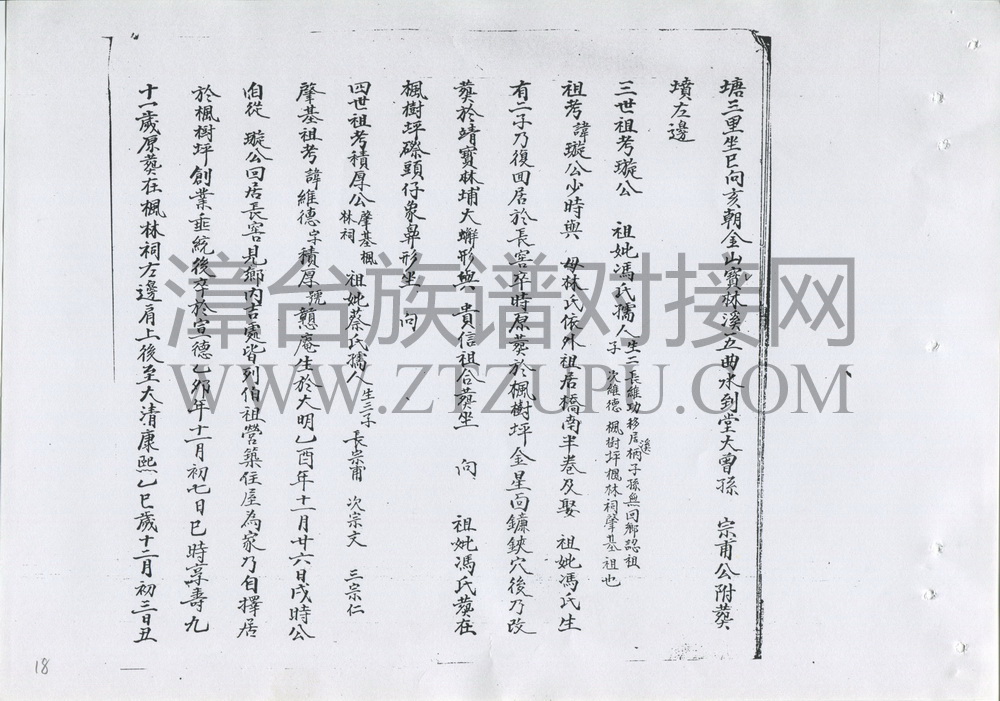 塘三里坐巳向亥朝金山寶林溪五曲水到堂大曾孫　宗甫公附葬
墳左邊
三世祖考璇公　祖妣馮氏孺人生二子　長維功移居柄溪子孫無回鄉認祖　次維德　楓樹坪楓林祠肇基祖也
祖考諱璇公少時與　母林氏依外祖居橋南半卷及娶　祖妣馮氏生
有二子乃復回居於長窖卒時原葬於楓樹坪金星面鐮鋏穴後乃改
葬於靖寶林埔大形與　貴信祖合葬坐　向　祖妣馮氏葬在
楓樹坪磜頭仔象鼻形坐　向
四世祖考積厚公肇基楓林祠　祖妣蔡氏孺人生三子　長宗甫　次宗文　三宗仁
肇基祖考諱維德字積厚號戇庵生於大明乙酉年十一月廿六日戌時公
自從　璇公回居長窖見鄉內吉處皆列伯祖營築住屋為家乃自擇居
於楓樹坪創業垂統後卒於宣德乙卯年十一月初七日巳時享壽九
十一歲原葬在楓林祠左邊肩上後至大清康熙乙巳歲十二月初三日丑
漳台族谱对接网
WWW.ZTZUPU.COM
18